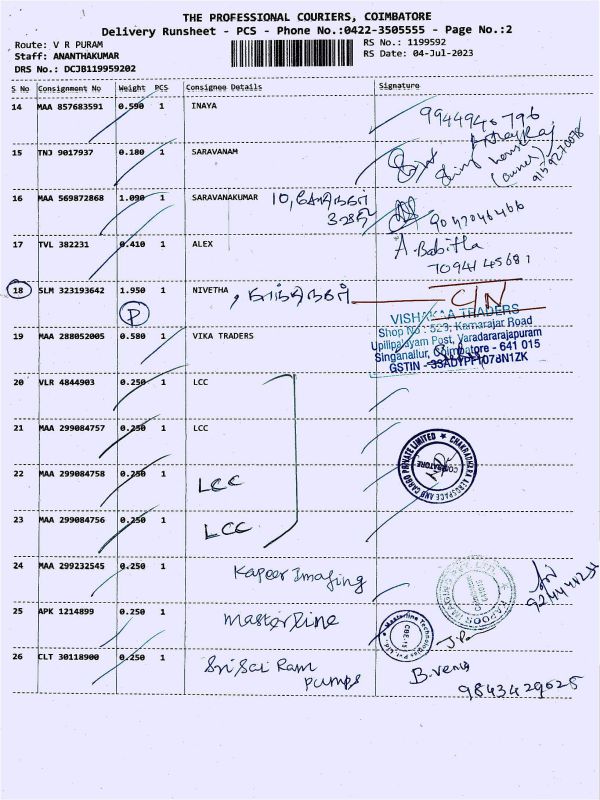 THE PROFESSIONAL COURIERS, COIMBATORE
Delivery Runsheet - PCS - Phone No.:0422-3505555 - Page No.:2
Route: V R PURAM
RS No.: 1199592
Staff: ANANTHAKUMAR
RS Date: 04-Jul-2023
DRS No.: DCJB119959202
S No Consignment No Weight PCS Consignee Details Signature
14 MAA 857683591 0.590 1 INAYA
9944946796
15 TNJ 9017937 0.180 1 SARAVANAM
(owner)
9159270078
16 MAA 569872868 1.090 1 SARAVANAKUMAR
9047046466
17 TVL 382231 0.410 1 ALEX A. Babitha
7094145681
18 SLM 323193642 1.950 1 NIVETHA, காந்திநகர் C/N
P
19 MAA 288052005 0.580 1 VIKA TRADERS
VISHAKAA TRADERS
Shop No : 529, Kamarajar Road
Upilipalayam Post, Varadararajapuram
Singanallur, Coimbatore - 641 015
GSTIN -
20 VLR 4844903 0.250 1 LCC
21 MAA 299084757 0.250 1 LCC
22 MAA 299084758 0.250 1 LCC
CHAKRADHARA AEROSPACE AND CARGO PRIVATE LIMITED
COIMBATORE
23 MAA 299084756 0.250 1 LCC
24 MAA 299232545 0.250 1 Kapoor Imaging
25 APK 1214899 0.250 1 Masterline
Masterline Technologies Pvt. Ltd.
CBE-15
26 CLT 30118900 0.250 1 Sri Sai Ram
Pumps
B. Venu
9843429625